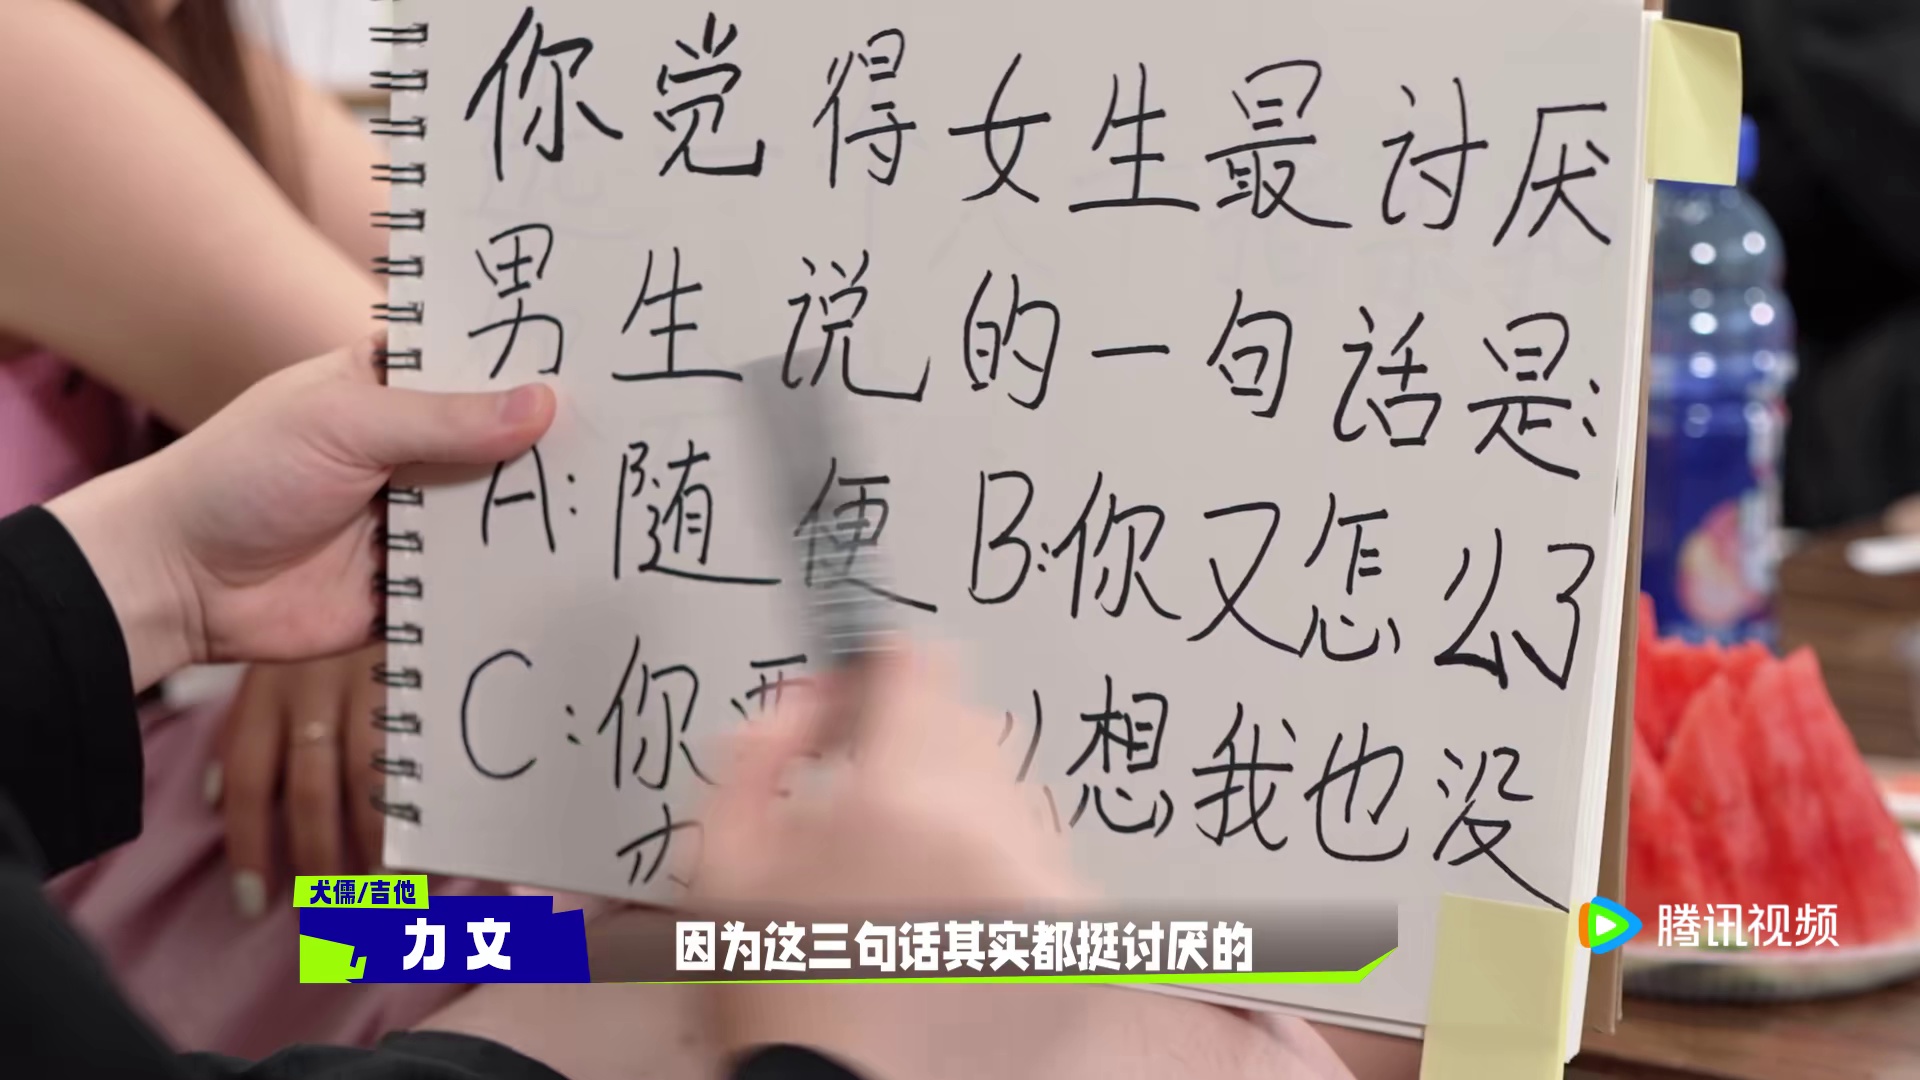 你觉得女生最讨厌
男生说的一句话是:
A:随便 B:你又怎么了
C:你要 想我也没
办
犬儒/吉他
力文
因为这三句话其实都挺讨厌的
腾讯视频